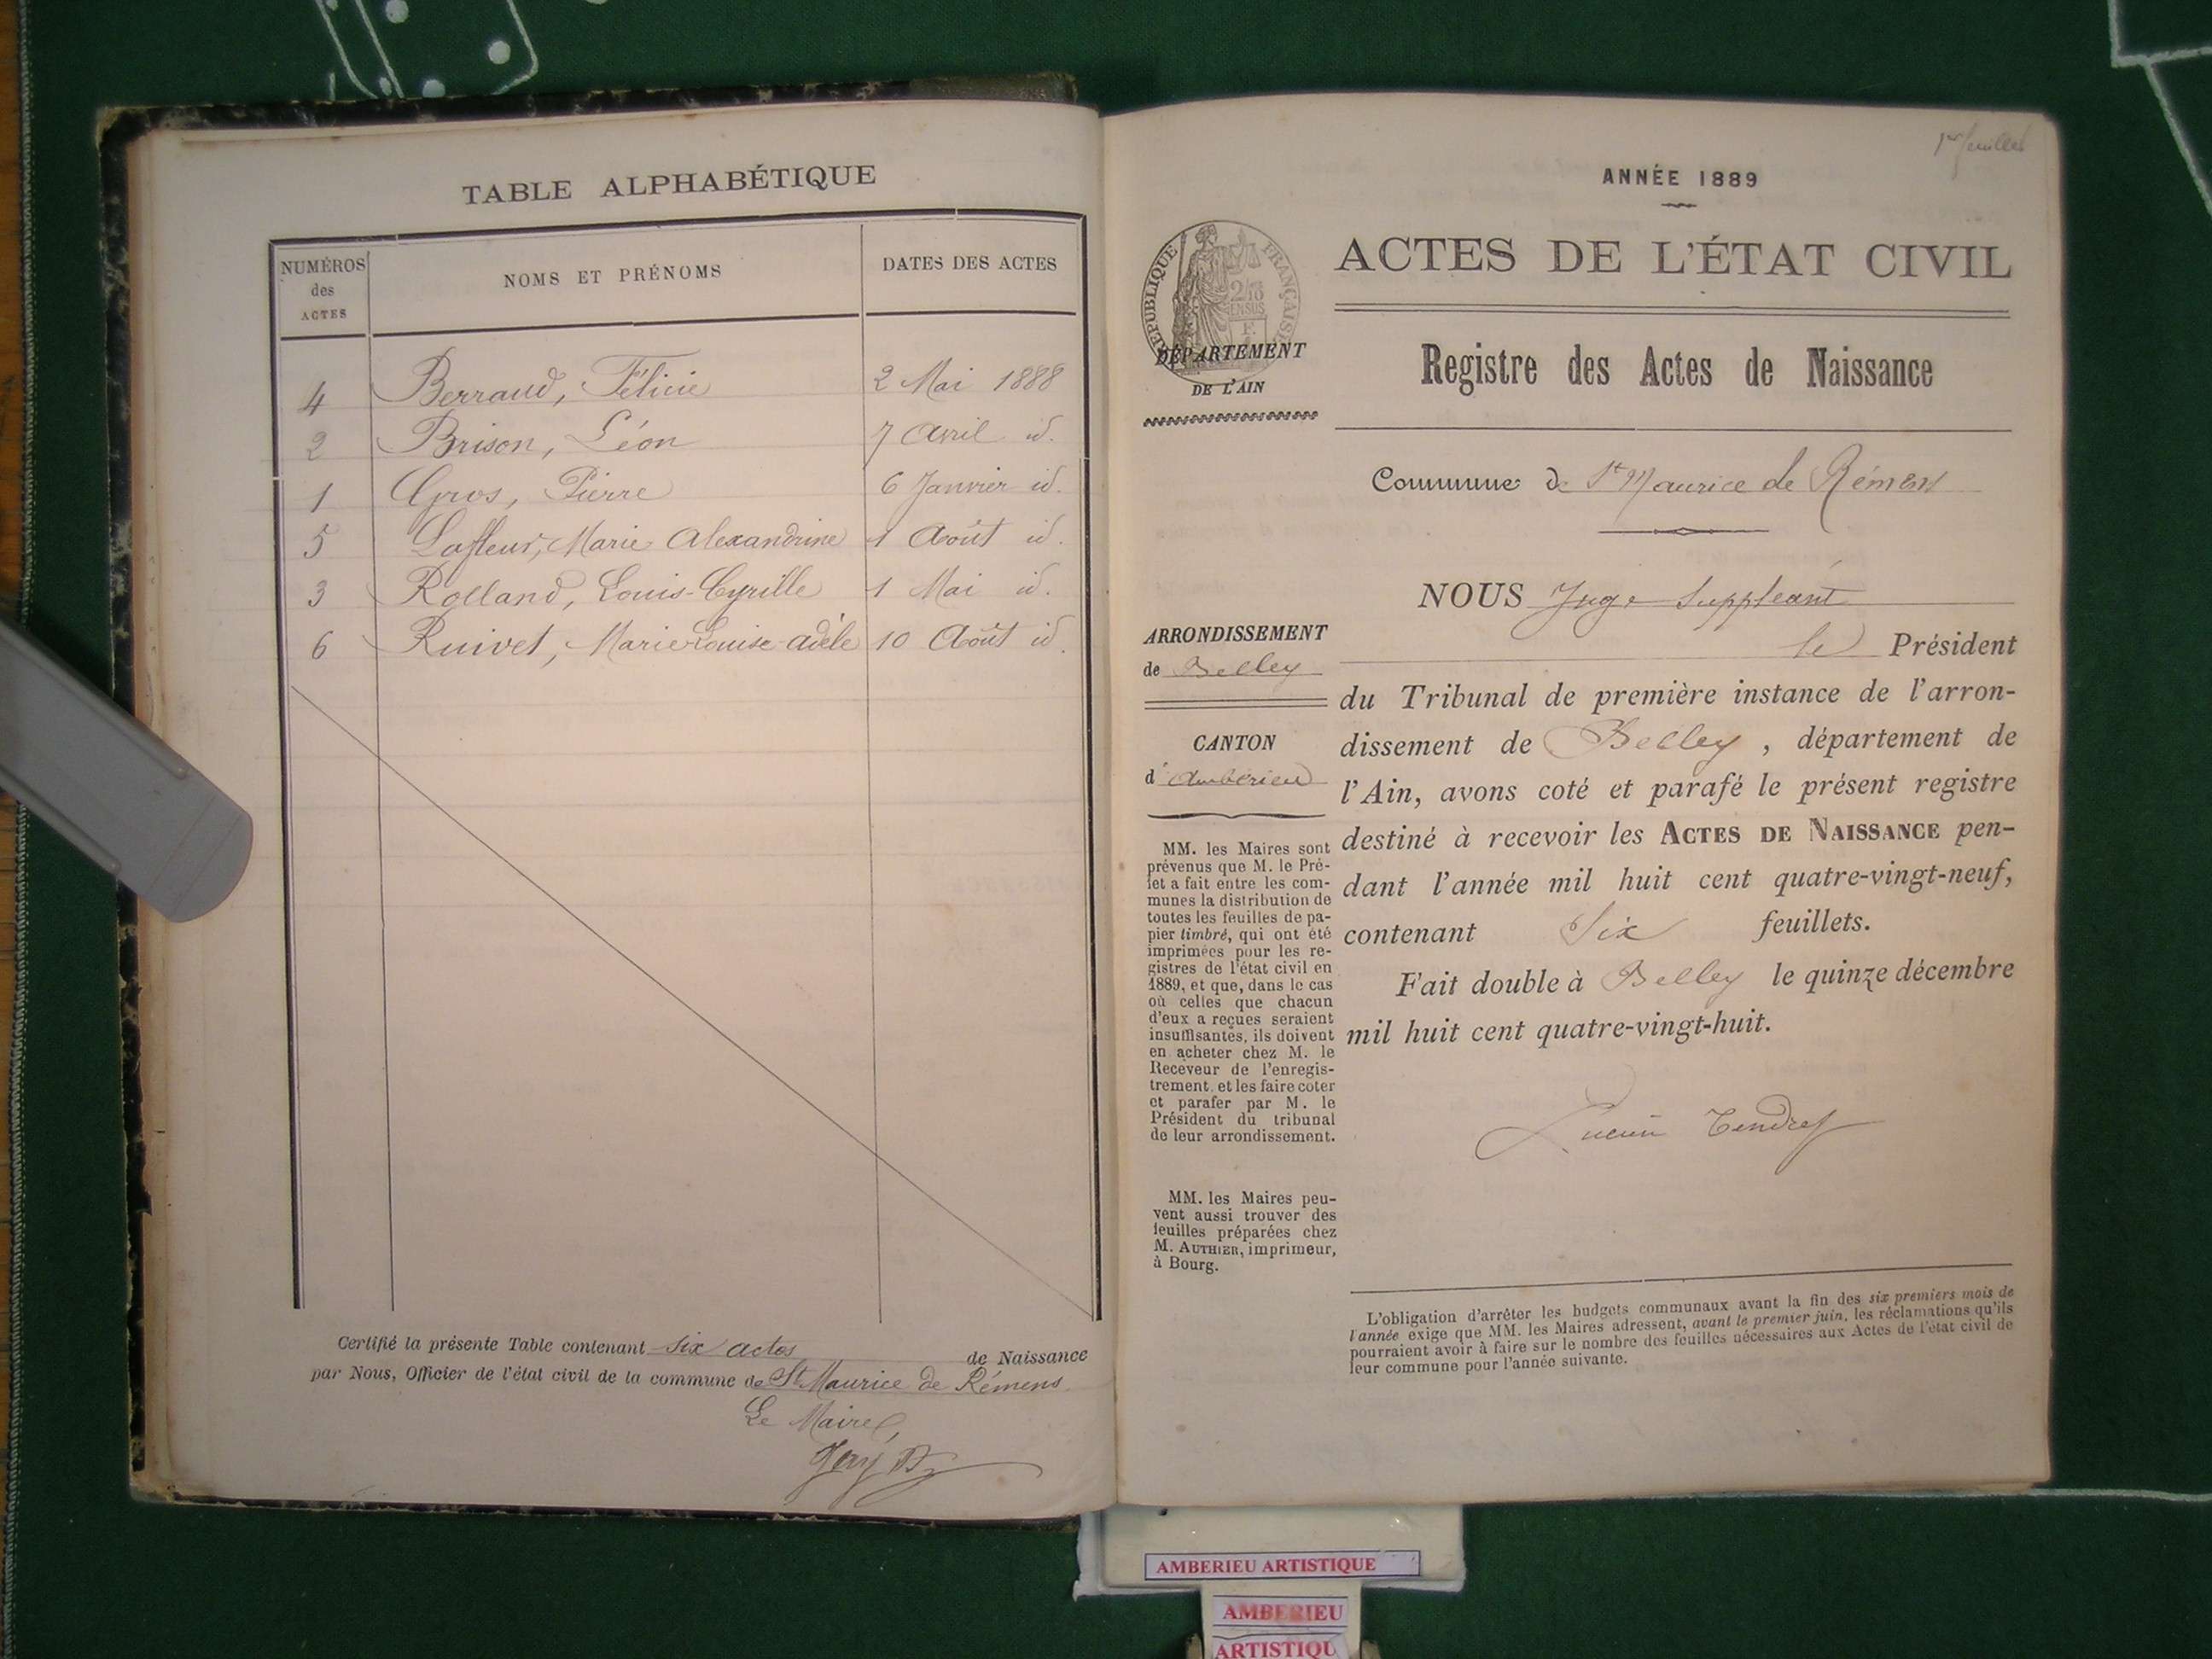 TABLE ALPHABÉTIQUE
NUMÉROS des ACTES
NOMS ET PRÉNOMS
DATES DES ACTES
4 Berraud, Félicie 2 Mai 1888
2 Brison, Léon 7 Avril id.
1 Gros, Pierre 6 Janvier id.
5 Lafleur, Marie Alexandrine 1 Août id.
3 Rolland, Louis-Cyrille 1 Mai id.
6 Ruivet, Marie Louise Adèle 10 Août id.
Certifié la présente Table contenant six actes de Naissance
par Nous, Officier de l'état civil de la commune de St Maurice de Rémens
Le Maire,
1er feuillet
ANNÉE 1889
RÉPUBLIQUE FRANÇAISE
ACTES DE L'ÉTAT CIVIL
DÉPARTEMENT
DE L'AIN
Registre des Actes de Naissance
Commune de St Maurice de Rémens
ARRONDISSEMENT
de Belley
CANTON
d'Ambérieu
MM. les Maires sont
prévenus que M. le Pré-
fet a fait entre les com-
munes la distribution de
toutes les feuilles de pa-
pier timbré, qui ont été
imprimées pour les re-
gistres de l'état civil en
1889, et que, dans le cas
où celles que chacun
d'eux a reçues seraient
insuffisantes, ils doivent
en acheter chez M. le
Receveur de l'enregis-
trement et les faire coter
et parafer par M. le
Président du tribunal
de leur arrondissement.
MM. les Maires peu-
vent aussi trouver des
feuilles préparées chez
M. AUTHIER, imprimeur,
à Bourg.
NOUS Juge Suppléant
le Président
du Tribunal de première instance de l'arron-
dissement de Belley, département de
l'Ain, avons coté et parafé le présent registre
destiné à recevoir les ACTES DE NAISSANCE pen-
dant l'année mil huit cent quatre-vingt-neuf,
contenant Six feuillets.
Fait double à Belley le quinze décembre
mil huit cent quatre-vingt-huit.
Lucien Tendret
L'obligation d'arrêter les budgets communaux avant la fin des six premiers mois de
l'année exige que MM. les Maires adressent, avant le premier juin, les réclamations qu'ils
pourraient avoir à faire sur le nombre des feuilles nécessaires aux Actes de l'état civil de
leur commune pour l'année suivante.
AMBERIEU ARTISTIQUE
AMBERIEU
ARTISTIQU